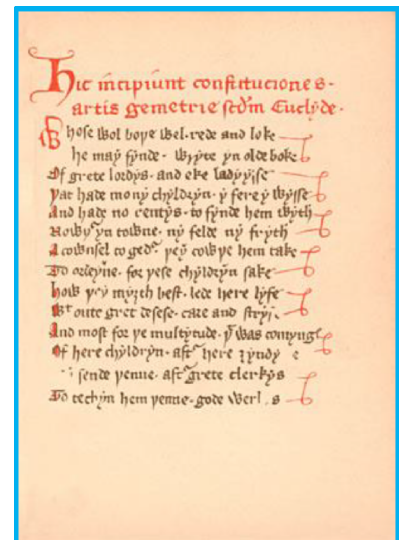 Hic incipiunt constituciones
artis gemetrie scdm Euclyde.
Whose wol boþe wel rede and loke
he may fynde wryte yn olde boke
Of grete lordys and eke ladyysse
þat hade mony chyldryn y fere y wysse
And hade no rentys to fynde hem wyth
Nowþyr yn towne ny felde ny fryth
A cownsel togedr þey cowþe hem take
To ordeyne for þese chyldryn sake
How þey myzth best lede here lyfe
Wt oute gret desese care and stryf
And most for þe multytude þt was comyng
Of here chyldryn aftr here zyndy
sende þenne aftr grete clerkys
To techyn hem þenne gode werkys